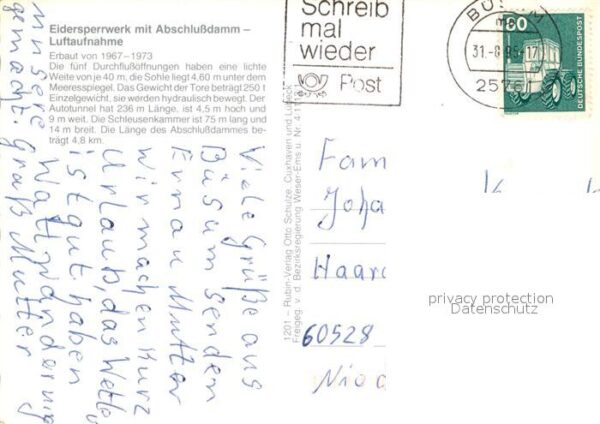 Eidersperrwerk mit Abschlußdamm –
Luftaufnahme
Erbaut von 1967–1973
Die fünf Durchflußöffnungen haben eine lichte
Weite von je 40 m, die Sohle liegt 4,60 m unter dem
Meeresspiegel. Das Gewicht der Tore beträgt 250 t
Einzelgewicht, sie werden hydraulisch bewegt. Der
Autotunnel hat 236 m Länge, ist 4,5 m hoch und
9 m weit. Die Schleusenkammer ist 75 m lang und
14 m breit. Die Länge des Abschlußdammes be-
trägt 4,8 km.
Viele Grüße aus
Büsum senden
Erna u Mutter
wir machen Kurz
Urlaub, das Wetter
ist gut haben
Wattwanderung
gemacht. Gruß Mutter
1201 – Rubin-Verlag Otto Schulze, Cuxhaven und Lübeck
Freigeg. v. d. Bezirksregierung Weser-Ems u. Nr.
Schreib
mal
wieder
Post
31.-8.95-17
60
DEUTSCHE BUNDESPOST
Fam
Joha
Haard
60528
privacy protection
Datenschutz